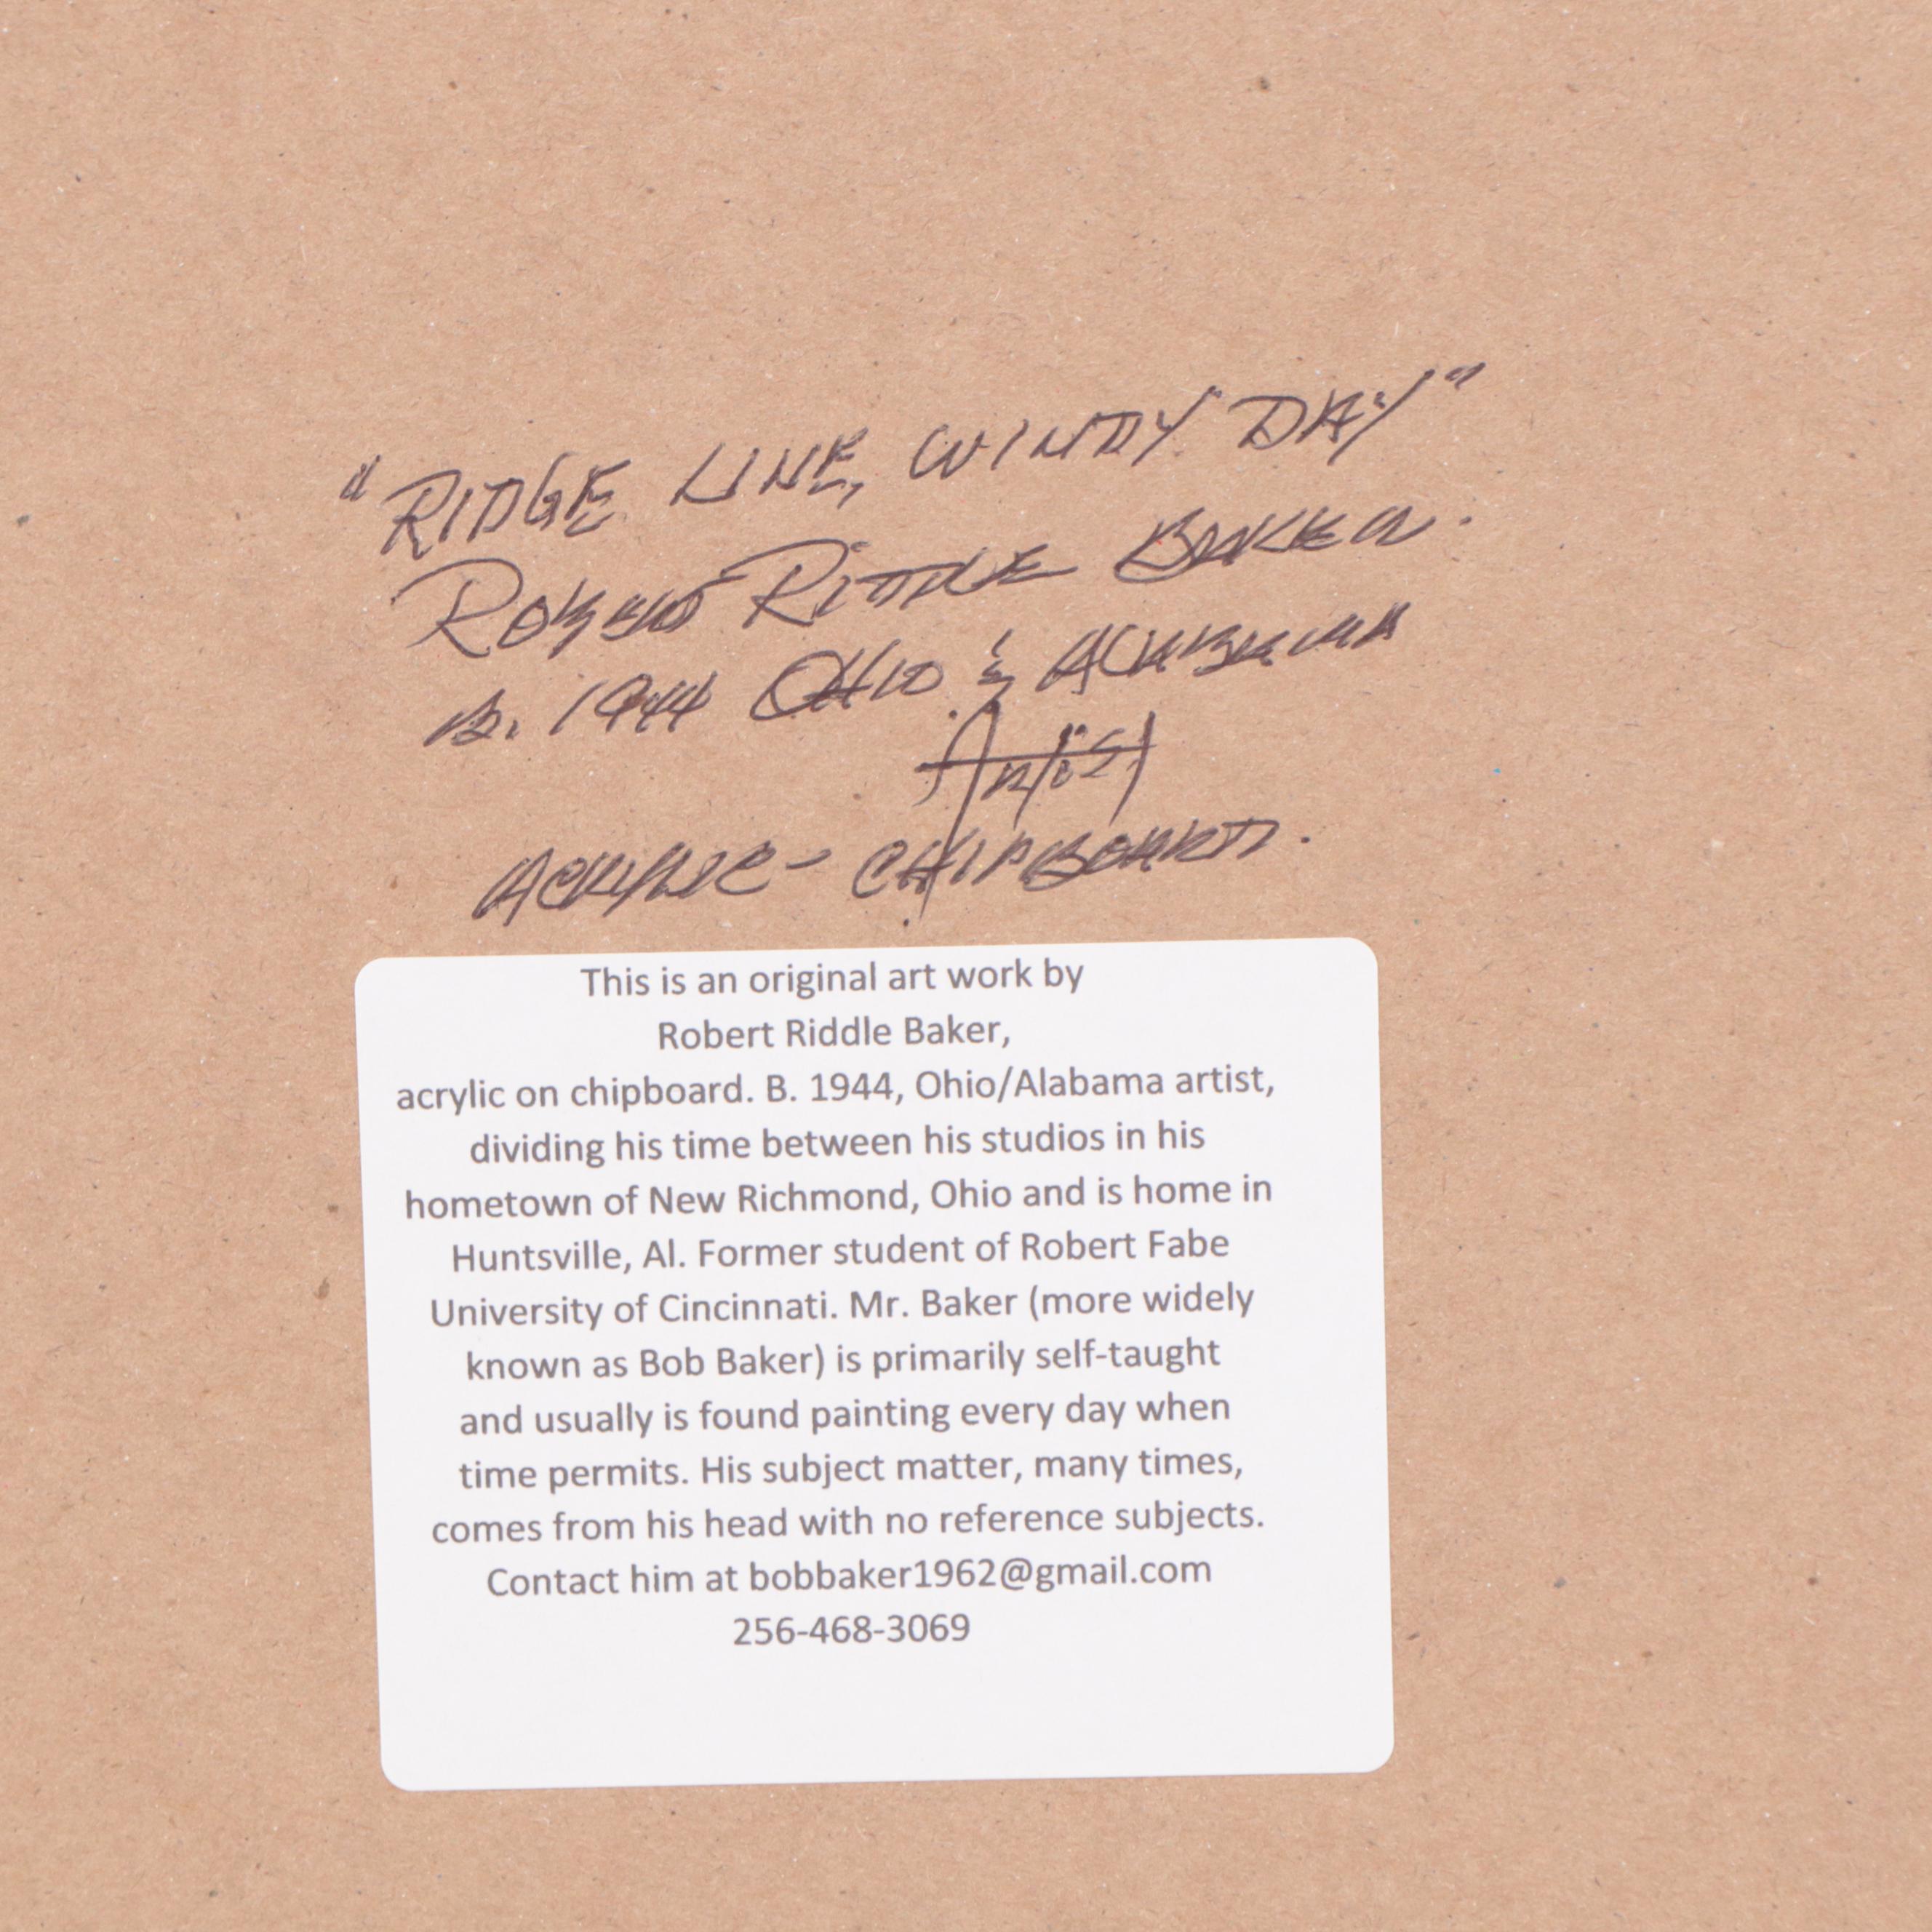 "RIDGE LINE, WINDY DAY"
ROBERT RIDDLE BAKER.
B. 1944 OHIO & ALABAMA
Artist
ACRYLIC - CHIPBOARD.
This is an original art work by
Robert Riddle Baker,
acrylic on chipboard. B. 1944, Ohio/Alabama artist,
dividing his time between his studios in his
hometown of New Richmond, Ohio and is home in
Huntsville, Al. Former student of Robert Fabe
University of Cincinnati. Mr. Baker (more widely
known as Bob Baker) is primarily self-taught
and usually is found painting every day when
time permits. His subject matter, many times,
comes from his head with no reference subjects.
Contact him at bobbaker1962@gmail.com
256-468-3069